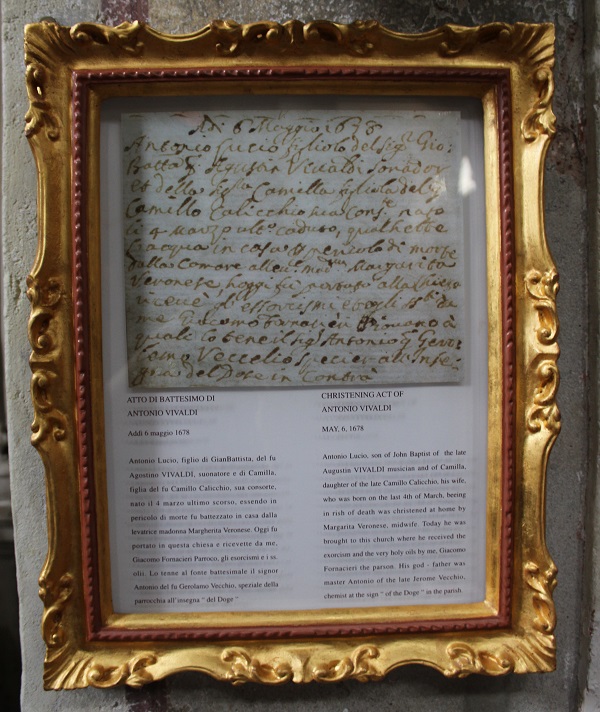 Adi 6 Maggio 1678
Antonio Lucio figliolo del sig.r Gio:
Batta q Agustin Vivaldi sonador
et della sig.ra Camilla figliola del q
Camillo Calicchio sua Cons.te nato
li 4 Marzo ult.o caduto, qual hebbe
l'acqua in casa p pericolo di morte
dalla Comare allevatrice mad.na Margarita
Veronese, hoggi fù portato alla chiesa
riceve gl'essorcismi et ogli S.ti da
me Giacomo Fornacieri
quali lo tene il sig.r Antonio q Gero
lemo Veccelio specier all'Inse
gna del Dose in Contrà
ATTO DI BATTESIMO DI
ANTONIO VIVALDI
Addì 6 maggio 1678
Antonio Lucio, figlio di GianBattista, del fu
Agostino VIVALDI, suonatore e di Camilla,
figlia del fu Camillo Calicchio, sua consorte,
nato il 4 marzo ultimo scorso, essendo in
pericolo di morte fu battezzato in casa dalla
levatrice madonna Margherita Veronese. Oggi fu
portato in questa chiesa e ricevette da me,
Giacomo Fornacieri Parroco, gli esorcismi e i ss.
olii. Lo tenne al fonte battesimale il signor
Antonio del fu Gerolamo Vecchio, speziale della
parrocchia all'insegna " del Doge "
CHRISTENING ACT OF
ANTONIO VIVALDI
MAY, 6, 1678
Antonio Lucio, son of John Baptist of the late
Augustin VIVALDI musician and of Camilla,
daughter of the late Camillo Calicchio, his wife,
who was born on the last 4th of March, beeing
in rish of death was christened at home by
Margarita Veronese, midwife. Today he was
brought to this church where he received the
exorcism and the very holy oils by me, Giacomo
Fornacieri the parson. His god - father was
master Antonio of the late Jerome Vecchio,
chemist at the sign " of the Doge " in the parish.